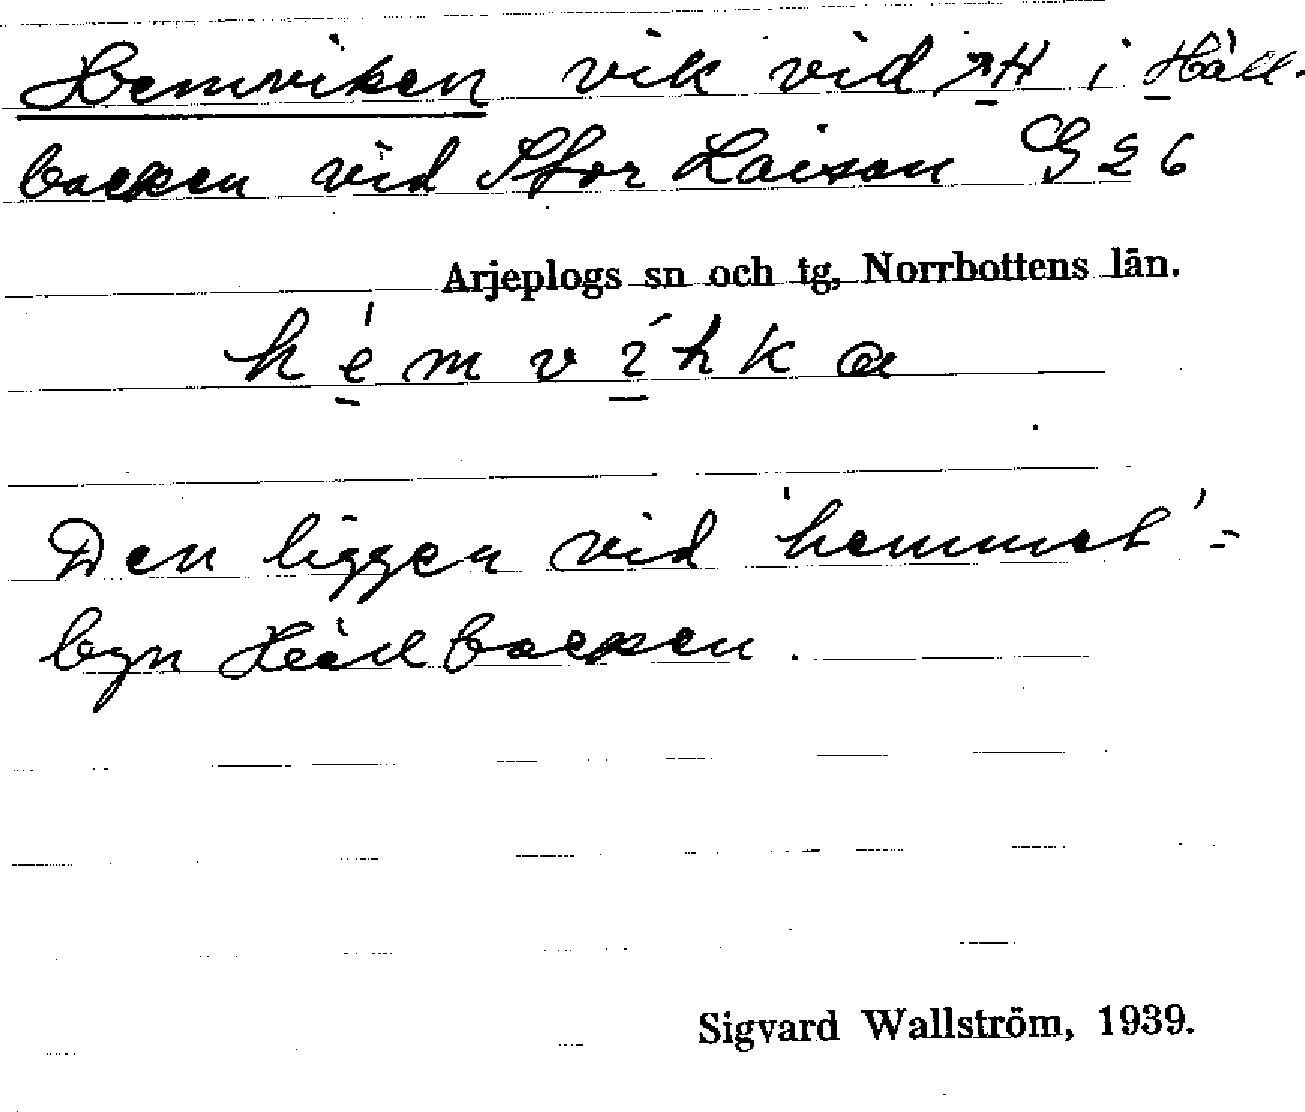 Hemviken vik vid i Häll-
backen vid Stor Laisan G 26
Arjeplogs sn och tg, Norrbottens län.
hémvíhka
Den ligger vid 'hemmet'-
byn Hällbacken.
Sigvard Wallström, 1939.